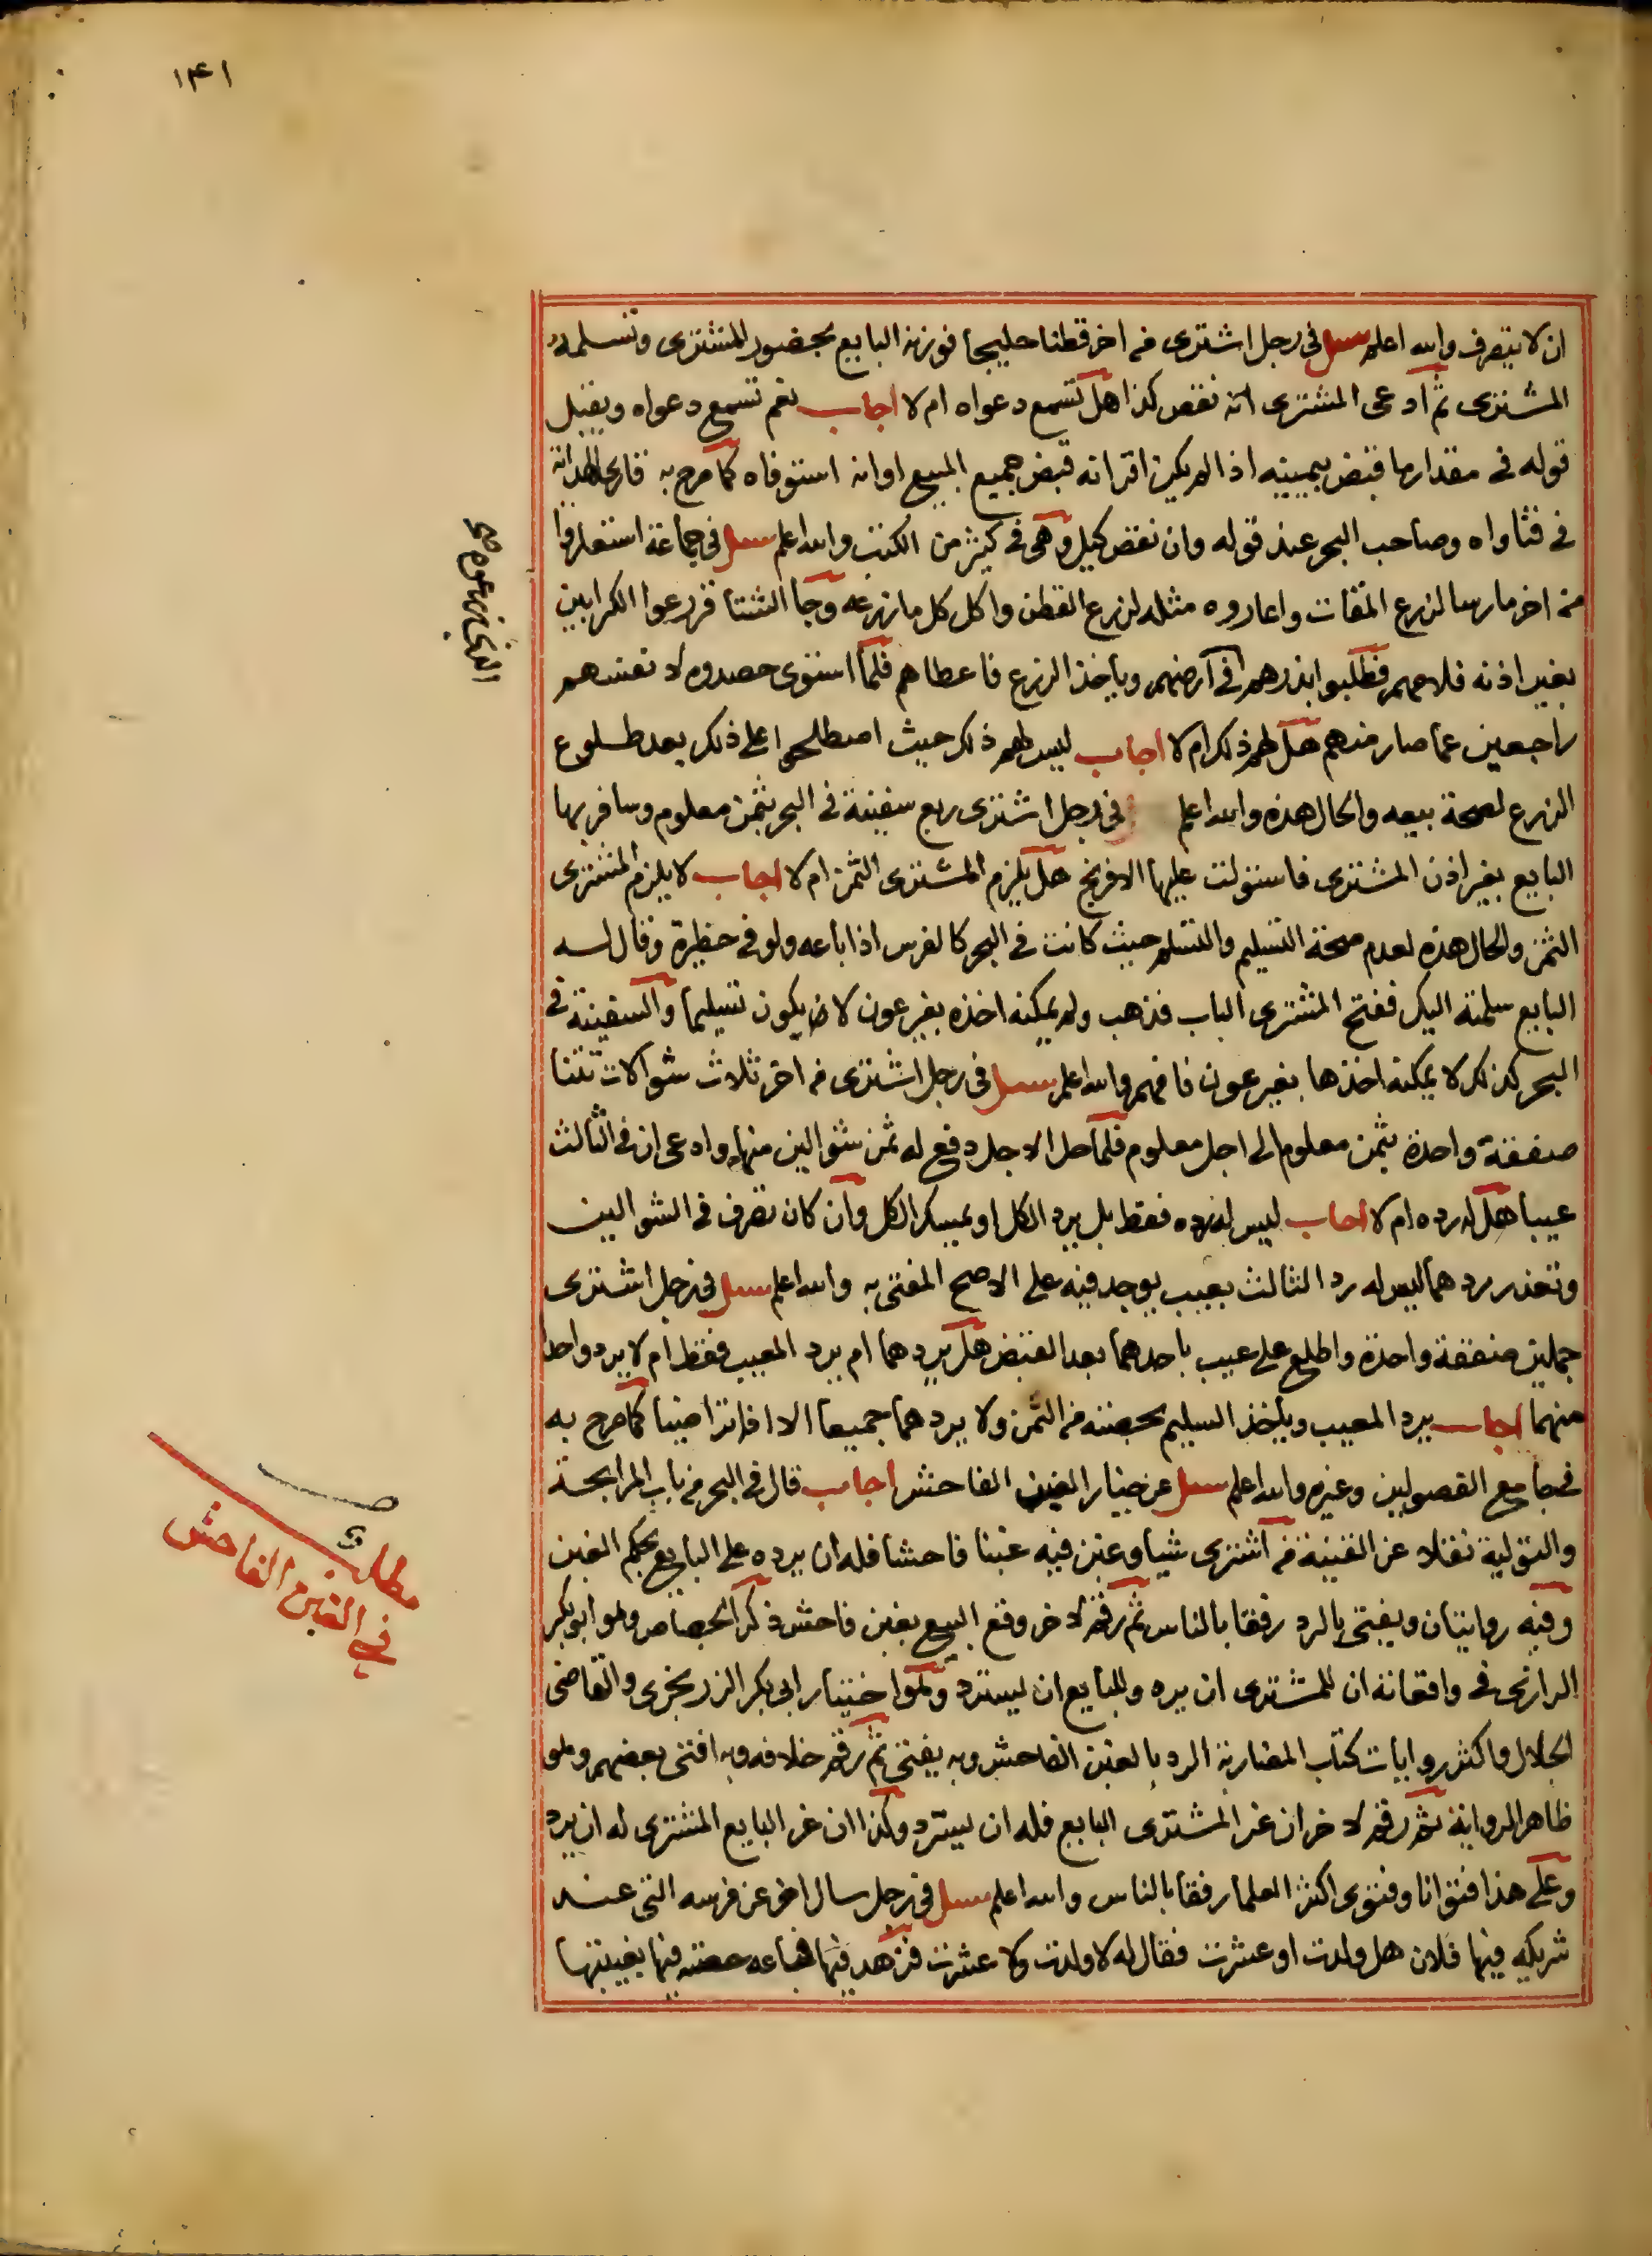 ١٤١
ان لا يتصرف والله اعلم سئل في رجل اشترى من اخر قطنا حليجا فوزنه البايع بحضور المشترى وتسلمه
المشترى ثم ادعى المشترى انه نقص كذا هل تسمع دعواه ام لا اجاب نعم تسمع دعواه ويقبل
قوله في مقدار ما قبض بيمينه اذا لم يكن اقر انه قبض جميع المبيع او انه استوفاه كما صرح به قارى الهداية
في فتاواه وصاحب البحر عند قوله وان نقص كيل وهى في كثير من الكتب والله اعلم سئل في جماعة استعاروا
من اخر مارسا لزرع المقات واعاروه مثله لزرع القطن واكل كل ما زرعه وجا الشتا فزرعوا الكرابين
بغير اذنه فلامهم فطلبوا بذرهم في ارضهم وياخذ الزرع فاعطاهم فلما استوى حصدوه لا نفسهم
راجعين عما صار منهم هل لهم ذلك ام لا اجاب ليس لهم ذلك حيث اصطلحوا على ذلك بعد طلوع
الزرع لصحة بيعه والحال هذه والله اعلم في رجل اشترى ربع سفينة في البحر بثمن معلوم وسافر بها
البايع بغير اذن المشترى فاستولت عليها الافرنج هل يلزم المشترى الثمن ام لا اجاب لا يلزم المشترى
الثمن والحال هذه لعدم صحة التسليم والتسلم حيث كانت في البحر كالفرس اذا باعه ولو في حظيرة وقال له
البايع سلمته اليك ففتح المشترى الباب فذهب ولم يمكنه اخذه بغير عون لا يكون تسليما والسفينة في
البحر كذلك لا يمكنه اخذها بغير عون فافهم والله اعلم سئل في رجل اشترى من اخر ثلاث شوالات تتنا
صفقة واحدة بثمن معلوم الى اجل معلوم فلما حل الاجل دفع له ثمن شوالين منها وادعى ان في الثالث
عيبا هل له رده ام لا اجاب ليس له رده فقط بل يرد الكل او يمسك الكل وان كان تصرف في الشوالين
وتعذر ردهما ليس له رد الثالث بعيب يوجد فيه على الاصح المفتى به والله اعلم سئل في رجل اشترى
جملين صفقة واحدة واطلع على عيب باحدهما بعد القبض هل يردهما ام يرد المعيب فقط ام لا يرد واحدا
منهما اجاب يرد المعيب وياخذ السليم بحصته من الثمن ولا يردهما جميعا الا اذا تراضيا كما صرح به
في جامع الفصولين وغيره والله اعلم سئل عن خيار الغبن الفاحش اجاب قال في البحر من باب المرابحة
والتولية نقلا عن القنية من اشترى شيا وغبن فيه غبنا فاحشا فله ان يرده على البايع بحكم الغبن
وفيه روايتان ويفتى بالرد رفقا بالناس ثم رقم لاخر وقع البيع بغبن فاحش ذكر الجصاص وهو ابو بكر
الرازى في واقعاته ان للمشترى ان يرده وللبايع ان يسترد وهو اختيار ابى بكر الزرنجرى والقاضى
الجلال واكثر روايات كتاب المضاربة الرد بالغبن الفاحش وبه يفتى ثم رقم خلافه وبه افتى بعضهم وهو
ظاهر الرواية ثم رقم لاخر ان غر المشترى البايع فله ان يسترد وكذا ان غر البايع المشترى له ان يرد
وعلى هذا فتوانا وفتوى اكثر العلما رفقا بالناس والله اعلم سئل في رجل سال اخر عن فرسه التى عند
شريكه فيها فلان هل ولدت او عشرت فقال له لا ولدت ولا عشرت فزهد فيها فباعه حصته فيها بغيبتها
مطلب
في الغبن الفاحش